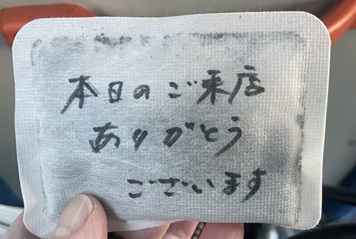 本日のご来店
ありがとう
ございます